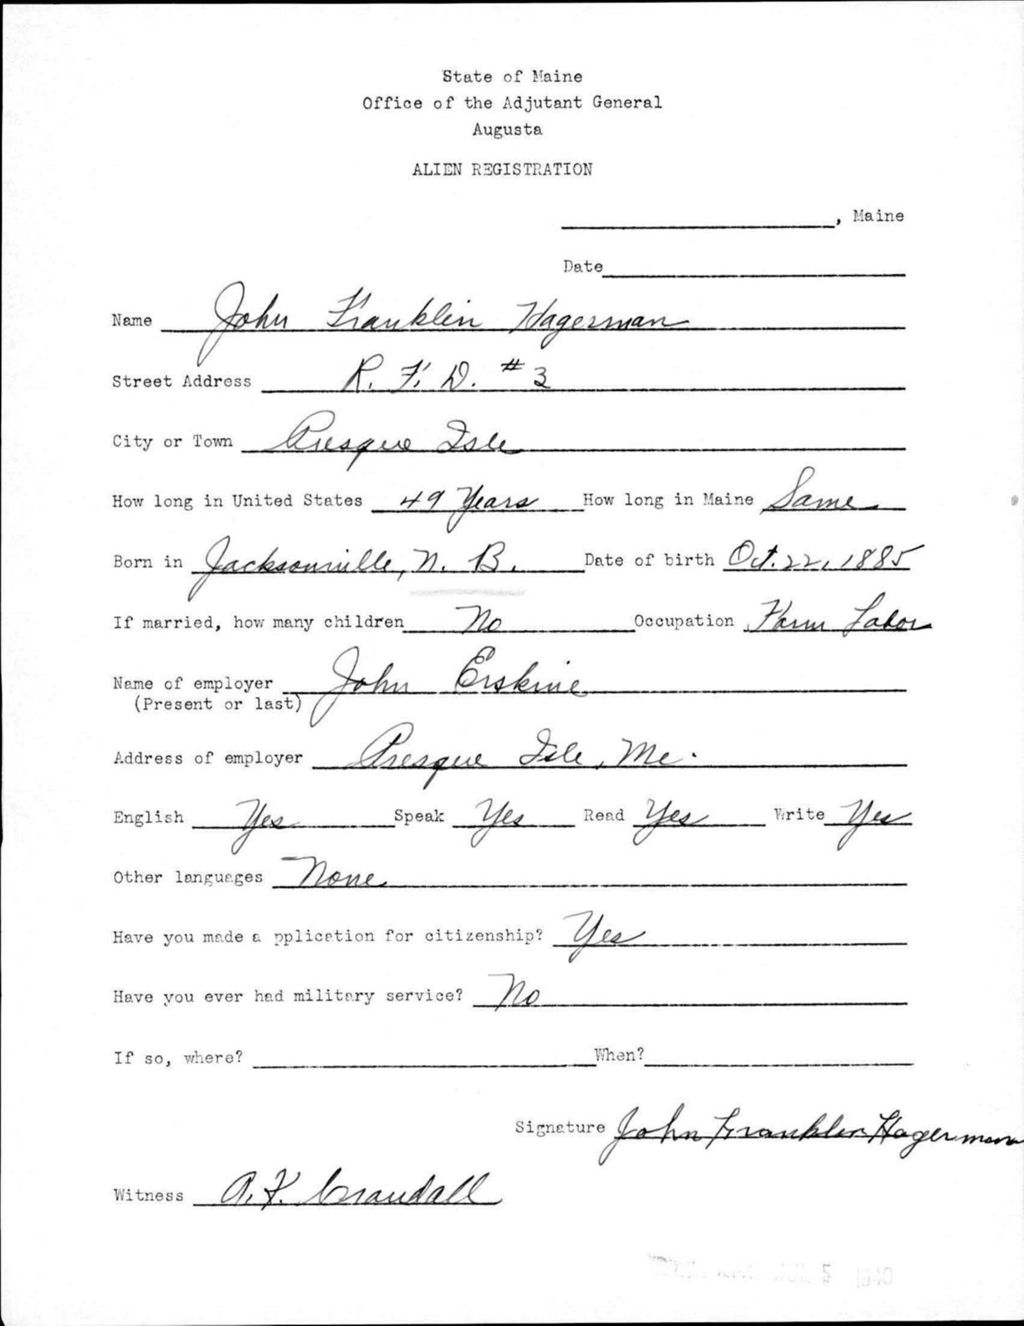 State of Maine
Office of the Adjutant General
Augusta
ALIEN REGISTRATION
, Maine
Date
Name John Franklin Hagerman
Street Address R. F. D. # 3
City or Town Presque Isle
How long in United States 49 Years How long in Maine Same
Born in Jacksonville, N. B. Date of birth Oct. 22, 1885
If married, how many children No Occupation Farm Labor
Name of employer John Erskine
(Present or last)
Address of employer Presque Isle, Me.
English Yes Speak Yes Read Yes Write Yes
Other languages None
Have you made a pplication for citizenship? Yes
Have you ever had military service? No
If so, where? When?
Signature John Franklin Hagerman
Witness A. F. Crandall
5 1940